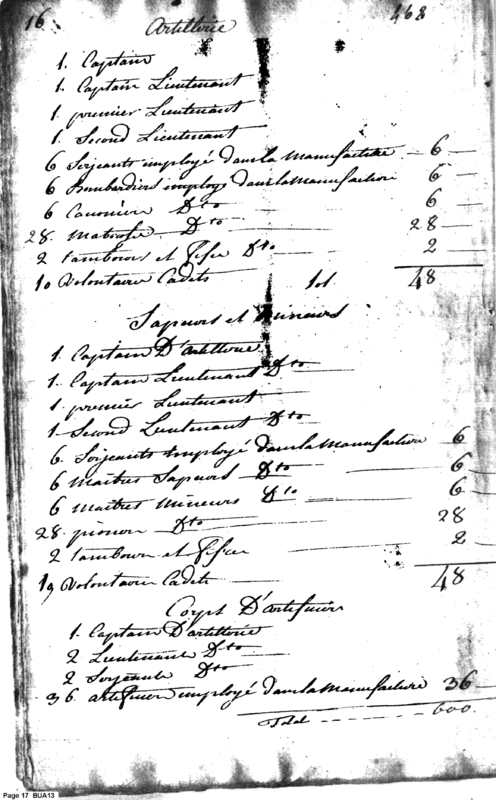 16 468
Artillerie
1. Captain
1. Captain Lieutenant
1 premier Lieutenant
1. Second Lieutenant
6 Serjeants employé dans la Manufacture — 6 —
6 Bombardiers employé dans la Manufacture 6 —
6 Canonier Dto — 6
28. Matrosse Dto — 28 —
2 tambours et fifre Dto — 2 —
10 Volontaire Cadets tot. 48
Sapeurs et Mineurs
1. Captain D'artillerie
1. Captain Lieutenant Dto
1 premier Lieutenant
1 Second Lieutenant Dto
6. Serjeants Employé dans la Manufacture 6
6 Maitres Sapeurs Dto 6
6 Maitres Mineurs Dto 6
28. pionon Dto 28
2 tambours et fifre 2
10 Volontaire Cadets 48
Corps D'artificier
1. Captain D'artillerie
2 Lieutenant Dto
2 Serjeants Dto
36. artificier employé dans la Manufacture 36
Total 600.
Page 17 BUA13